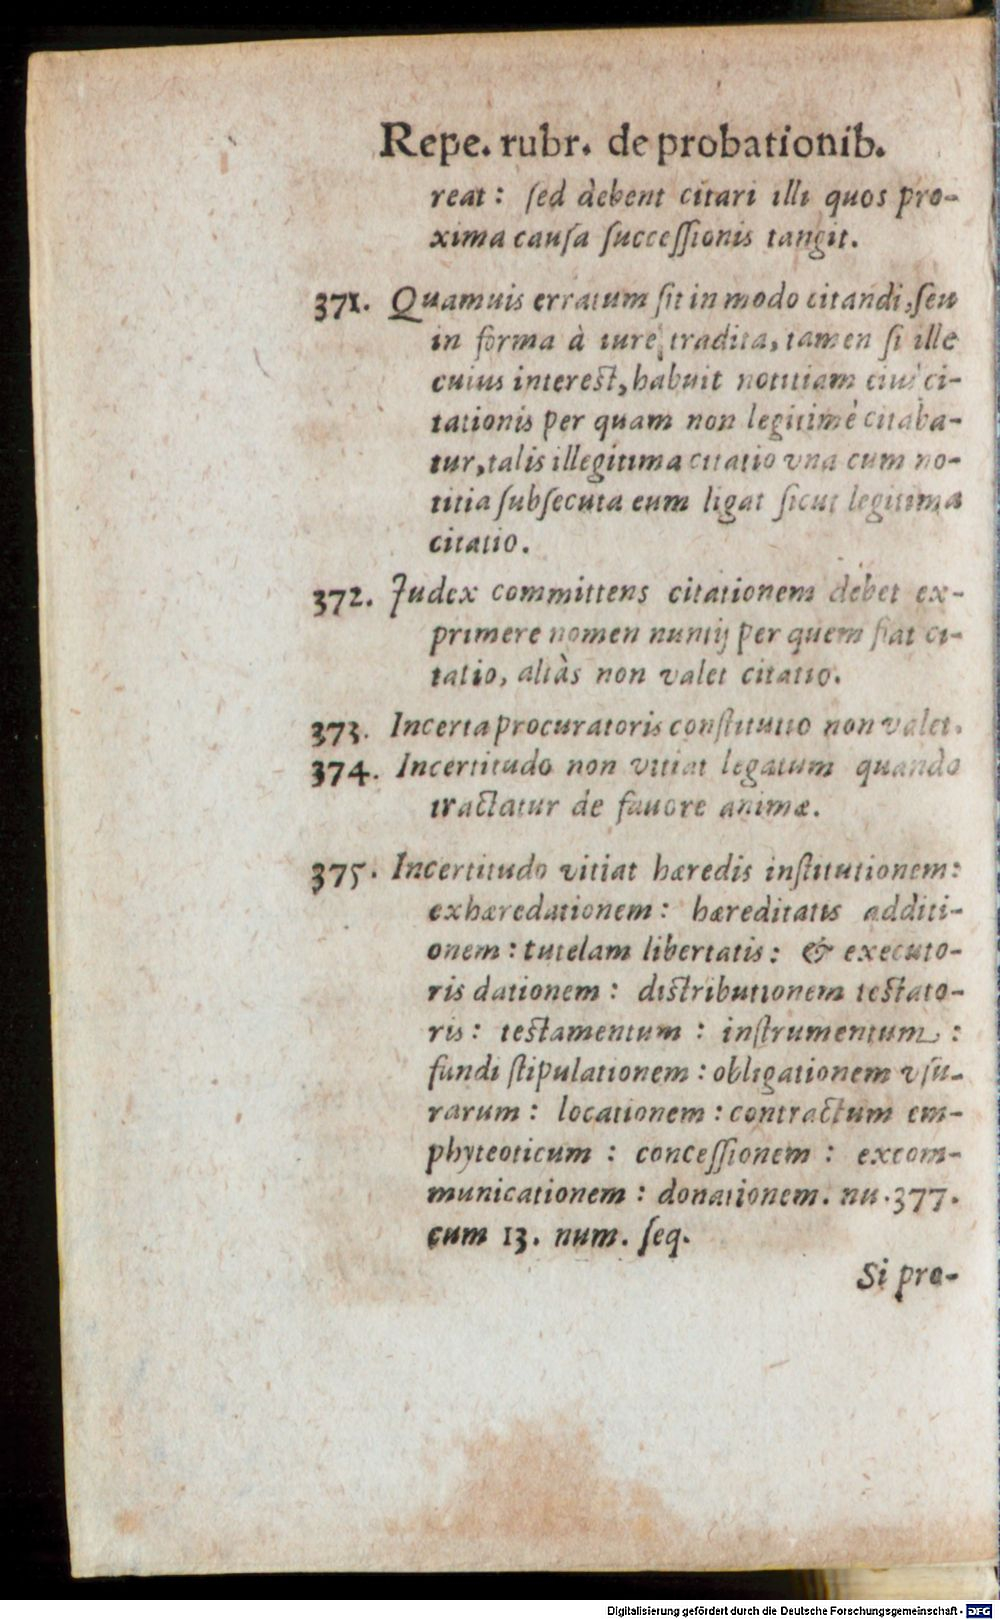 Repe. rubr. de probationib.
reat: ſed debent citari illi quos pro-
xima cauſa ſucceſſionis tangit.
371. Quamuis erratum ſit in modo citandi, ſeu
in forma à iure tradita, tamen ſi ille
cuius interest, habuit notitiam eius ci-
tationis per quam non legitimè citaba-
tur, talis illegitima citatio vna cum no-
titia ſubſecuta eum ligat ſicut legitima
citatio.
372. Judex committens citationem debet ex-
primere nomen nuntij per quem fiat ci-
tatio, aliàs non valet citatio.
373. Incerta procuratoris conſtitutio non valet.
374. Incertitudo non vitiat legatum quando
tractatur de fauore animæ.
375. Incertitudo vitiat hæredis inſtitutionem:
exhæredationem: hæreditatis additi-
onem: tutelam libertatis: & executo-
ris dationem: distributionem testato-
ris: testamentum: inſtrumentum:
fundi ſtipulationem: obligationem vſu-
rarum: locationem: contractum em-
phyteoticum: conceſſionem: excom-
municationem: donationem. nu. 377.
cum 13. num. ſeq.
Si pro-
Digitalisierung gefördert durch die Deutsche Forschungsgemeinschaft - DFG